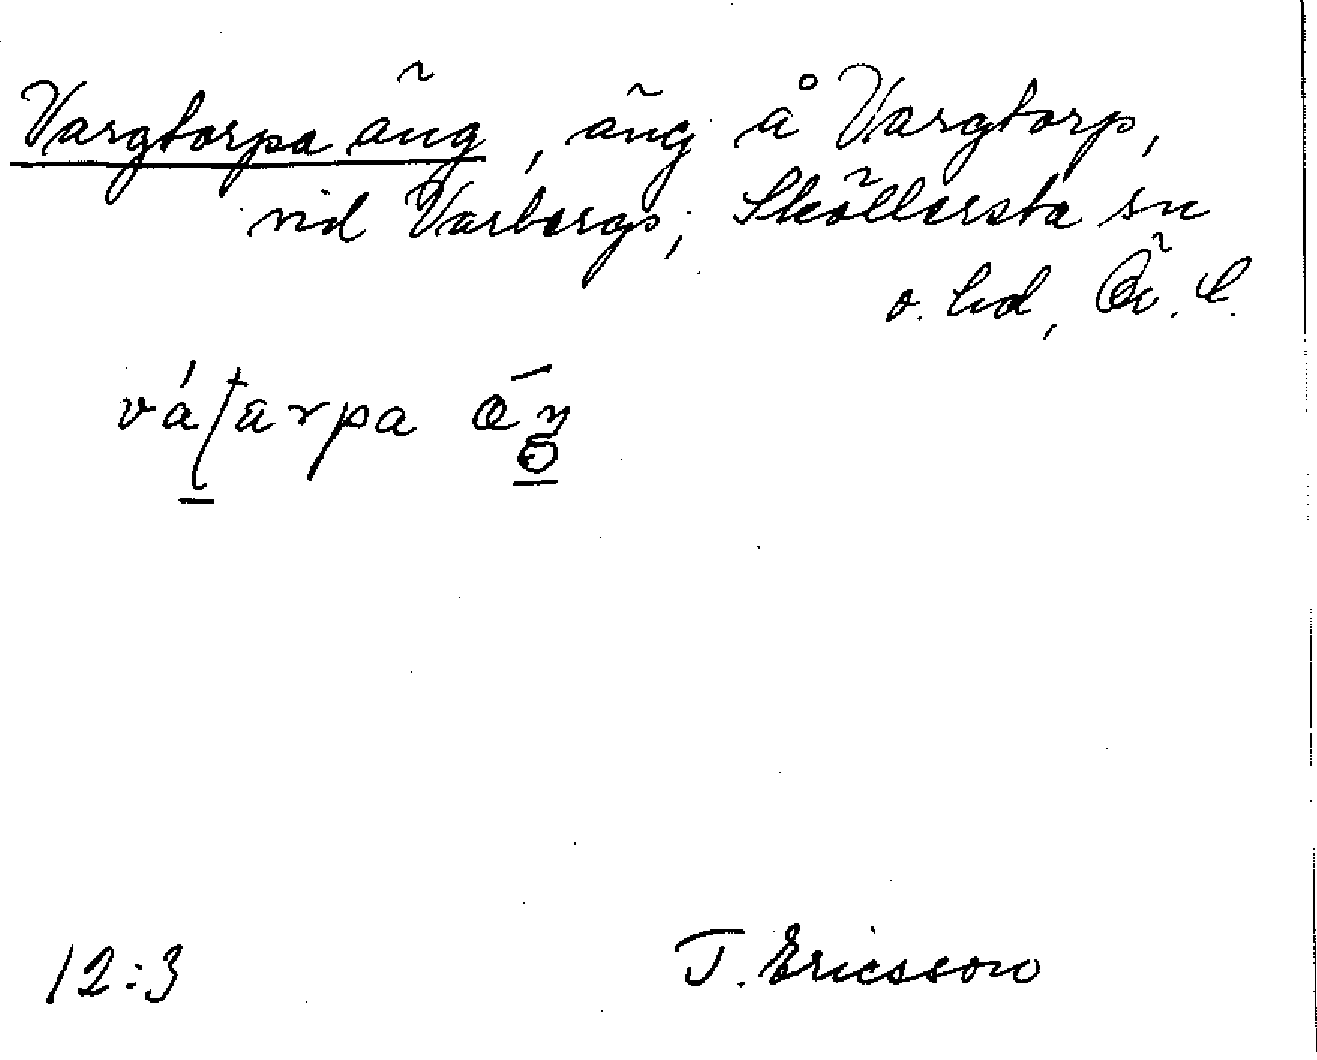 Vargtorpa äng, äng å Vargtorp,
vid Varbergs; Sköllersta sn
o. hd, Ör. l.
12:3
J. Ericsson